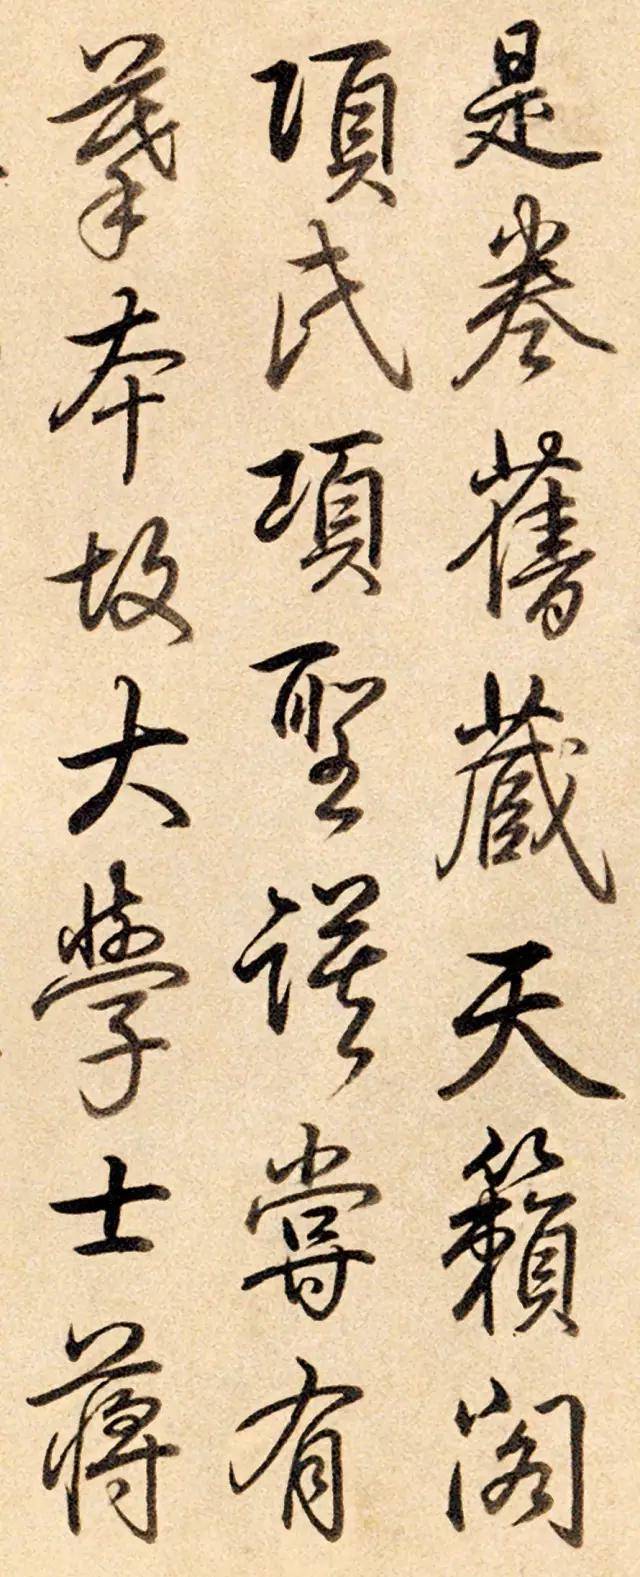 是卷舊藏天籟閣
項氏項聖謨嘗有
摹本故大學士蔣